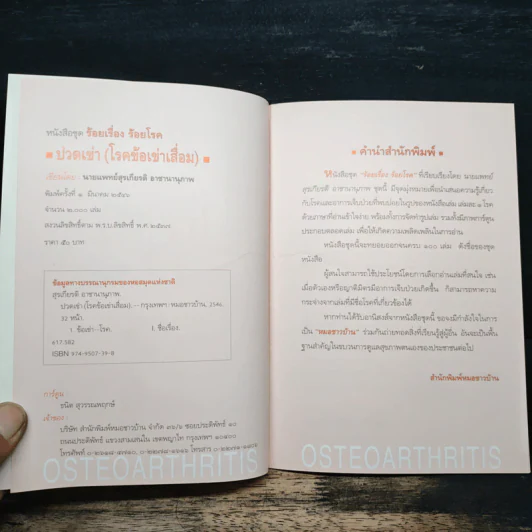 หนังสือชุด ร้อยเรื่อง ร้อยโรค
ปวดเข่า (โรคข้อเข่าเสื่อม)
เขียนโดย : นายแพทย์สุรเกียรติ อาชานานุภาพ
พิมพ์ครั้งที่ ๑ มีนาคม ๒๕๔๖
จำนวน ๒,๐๐๐ เล่ม
สงวนลิขสิทธิ์ตาม พ.ร.บ.ลิขสิทธิ์ พ.ศ. ๒๕๓๗
ราคา ๕๐ บาท
ข้อมูลทางบรรณานุกรมของหอสมุดแห่งชาติ
สุรเกียรติ อาชานานุภาพ.
ปวดเข่า (โรคข้อเข่าเสื่อม).-- กรุงเทพฯ : หมอชาวบ้าน, 2546.
32 หน้า.
1. ข้อเข่า--โรค. I. ชื่อเรื่อง.
617.582
ISBN 974-9507-39-8
การ์ตูน
ชนิด สุวรรณพฤกษ์
เจ้าของ :
บริษัท สำนักพิมพ์หมอชาวบ้าน จำกัด ๓๖/๖ ซอยประดิพัทธ์ ๑๐
ถนนประดิพัทธ์ แขวงสามเสนใน เขตพญาไท กรุงเทพฯ ๑๐๔๐๐
OSTEOARTHRITIS
คำนำสำนักพิมพ์
หนังสือชุด "ร้อยเรื่อง ร้อยโรค" ที่เรียบเรียงโดย นายแพทย์
สุรเกียรติ อาชานานุภาพ ชุดนี้ มีจุดมุ่งหมายเพื่อนำเสนอความรู้เกี่ยว
กับโรคและอาการเจ็บป่วยที่พบบ่อยในรูปของหนังสือเล่ม เล่มละ ๑ โรค
ด้วยภาษาที่อ่านเข้าใจง่าย พร้อมทั้งการจัดทำรูปเล่ม รวมทั้งมีภาพการ์ตูน
ประกอบตลอดเล่ม เพื่อให้เกิดความเพลิดเพลินในการอ่าน
หนังสือชุดนี้จะทยอยออกจนครบ ๑๐๐ เล่ม ดังชื่อของชุด
หนังสือ
ผู้สนใจสามารถใช้ประโยชน์โดยการเลือกอ่านเล่มที่สนใจ เช่น
เมื่อตัวเองหรือญาติมิตรมีอาการเจ็บป่วยเกิดขึ้น ก็สามารถหาความ
กระจ่างจากเล่มที่มีชื่อโรคที่เกี่ยวข้องได้
หากท่านได้รับอานิสงส์จากหนังสือชุดนี้ ขอจงมีกำลังใจในการ
เป็น "หมอชาวบ้าน" ร่วมกันถ่ายทอดสิ่งที่เรียนรู้สู่ผู้อื่น อันจะเป็นพื้น
ฐานสำคัญในขบวนการดูแลสุขภาพตนเองของประชาชนต่อไป
สำนักพิมพ์หมอชาวบ้าน
OSTEOARTHRITIS